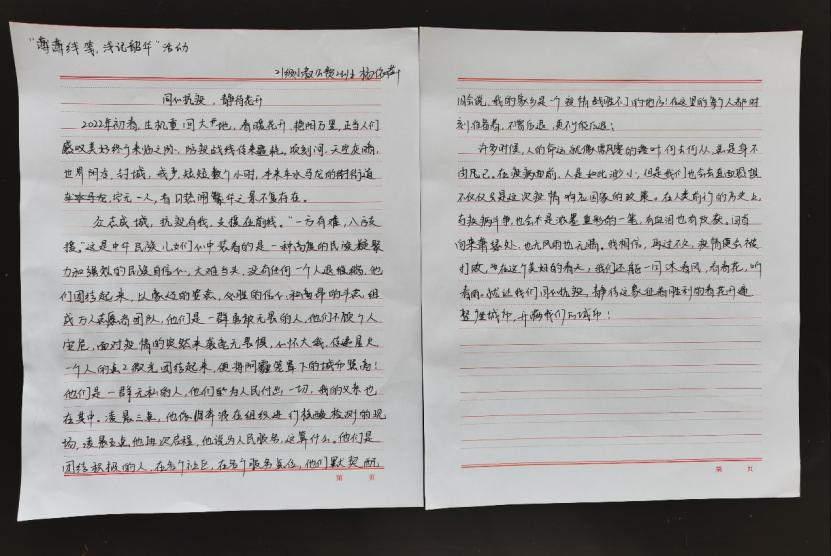 "薄薄纸笺,浅记韶华"活动
21级小教
同心抗疫,静待花开
2022年初春,生机重回大地,春暖花开,艳阳万里,正当人们
感叹美好终于来临之际,防疫战线传来噩耗。顷刻间,天空灰暗,
世界阴沉,封城,我乡短短数个小时,本来车水马龙的街道
空无一人,昔日热闹繁华之景不复存在。
众志成城,抗疫有我,支援在前线。"一方有难,八方支
援。"这是中华民族儿女们心中装着的是一种高度的民族凝聚
力和强烈的民族自信心,大难当头,没有任何一个人退缩,他
们团结起来,以豪迈的姿态,必胜的信心和高昂的斗志,组
成万人志愿者团队,他们是一群勇敢无畏的人,他们不顾个人
安危,面对疫情的突然来袭毫无畏惧,心怀大我,
一个人的点点微光团结起来,便将阴霾笼罩下的城市照亮!
他们是一群无私的人,他们能为人民付出一切,我的父亲也
在其中。凌晨三点,他依旧奔波在组织进行核酸检测的现
场,凌晨五点他再次启程,他说为人民服务,这算什么。他们是
团结积极的人,在各个社区,在各个服务点位,他们默契配
旧会说,我的家乡是个疫情战胜不了的地方!在这里的每个人都时
刻准备着,不需后退,更不可能后退!
许多时候,人的命运就像席风卷的落叶,何去何从,总是身不
由己。在疫病面前,人是如此渺小,但是我们也会去直面困境
不仅仅只是这次疫情响应国家的政策。在人类前行的历史上,
与疫病斗争,也会不是浓墨重彩的一笔,有血泪也有收获。回首
向来萧瑟处,也无风雨也无晴。我相信,再过不久,疫情便会被
打败,在这个美好的春天,我们还能一同沐春风,看春花,听
春雨。就让我们同心抗疫,静待这象征着胜利的春花开遍
整座城市,开满我们的城市!
第 页
第 页